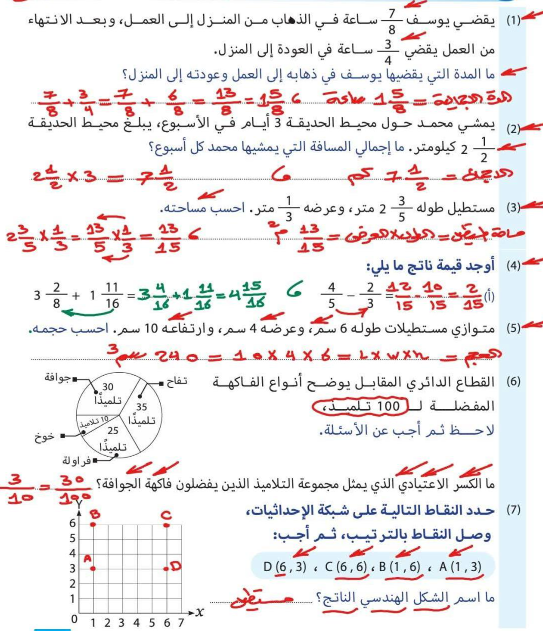 (1) يقضي يوسف 7/8 ساعة في الذهاب من المنزل إلى العمل، وبعد الانتهاء
من العمل يقضي 3/4 ساعة في العودة إلى المنزل.
ما المدة التي يقضيها يوسف في ذهابه إلى العمل وعودته إلى المنزل؟
المدة الإجمالية = 1 5/8 ساعة 6 7/8 + 3/4 = 7/8 + 6/8 = 13/8 = 1 5/8
(2) يمشي محمد حول محيط الحديقة 3 أيام في الأسبوع، يبلغ محيط الحديقة
2 1/2 كيلومتر. ما إجمالي المسافة التي يمشيها محمد كل أسبوع؟
= 7 1/2 كم 6 2 1/2 × 3 = 7 1/2
(3) مستطيل طوله 2 3/5 متر، وعرضه 1/3 متر. احسب مساحته.
مساحة المستطيل = الطول × العرض = 13/15 م2 6 2 3/5 × 1/3 = 13/5 × 1/3 = 13/15
(4) أوجد قيمة ناتج ما يلي:
(أ) 4/5 − 2/3 = 12/15 − 10/15 = 2/15 6 3 2/8 + 1 11/16 = 3 4/16 + 1 11/16 = 4 15/16
(5) متوازي مستطيلات طوله 6 سم، وعرضه 4 سم، وارتفاعه 10 سم. احسب حجمه.
الحجم = L x w x h = 6 × 4 × 10 = 240 سم3
(6) القطاع الدائري المقابل يوضح أنواع الفاكهة
المفضلة لـ 100 تلميذ،
لاحظ ثم أجب عن الأسئلة.
تفاح
35
تلميذًا
جوافة
30
تلميذًا
خوخ
10 تلاميذ
فراولة
25
تلميذًا
ما الكسر الاعتيادي الذي يمثل مجموعة التلاميذ الذين يفضلون فاكهة الجوافة؟ 30/100 = 3/10
(7) حدد النقاط التالية على شبكة الإحداثيات،
وصل النقاط بالترتيب، ثم أجب:
D (6 , 3) ، C (6 , 6) ، B (1 , 6) ، A (1 , 3)
ما اسم الشكل الهندسي الناتج؟ مستطيل
Y
6 B C
5
4
3 A D
2
1
0 1 2 3 4 5 6 7 X